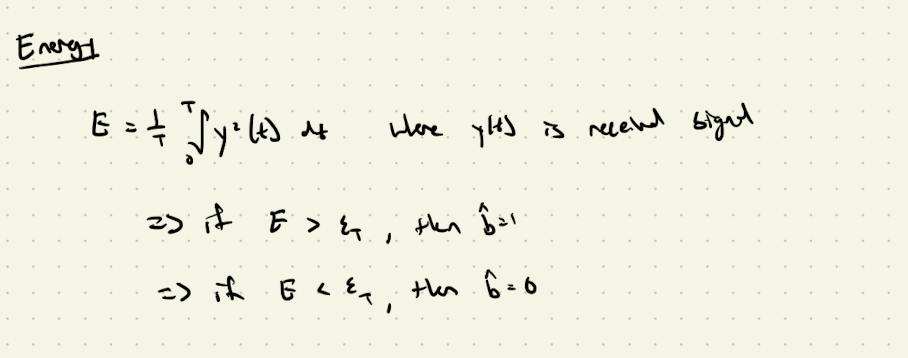 Energy
E = 1/T ₀∫ᵀ y²(t) dt where y(t) is received signal
=> if E > ε_T, then b̂=1
=> if E < ε_T, then b̂=0